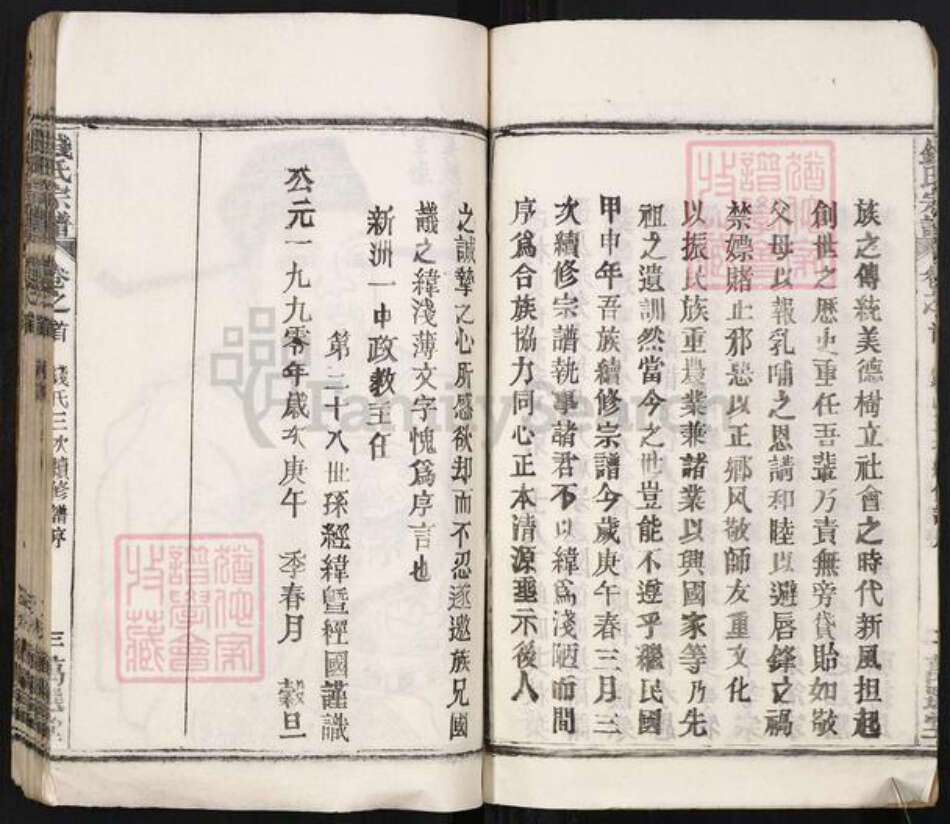 族之傳統美德樹立社會之時代新風担起
創世之歷史重任吾輩乃責無旁貸貽如敬
父母以報乳哺之恩請和睦以避唇鋒之禍
禁嫖賭止邪惡以正鄉风敬師友重文化
以振民族重農業兼諸業以興國家等乃先
祖之遺訓然當今之世豈能不遵乎繼民國
甲申年吾族續修宗譜今歲庚午春三月三
次續修宗譜執事諸君不以緯爲淺陋而問
序爲合族協力同心正本清源垂示後人
之誠摯之心所感欲却而不忍遂邀族兄國
議之緯淺薄文字愧爲序言也
新洲一中政教主任
第二十八世孫經緯暨經國謹識
公元一九九零年歲次庚午 季春月 穀旦
錢氏宗譜 卷之首 錢氏三次續修譜序 三 萬選堂
猶他家
譜學會
收藏
FamilySearch